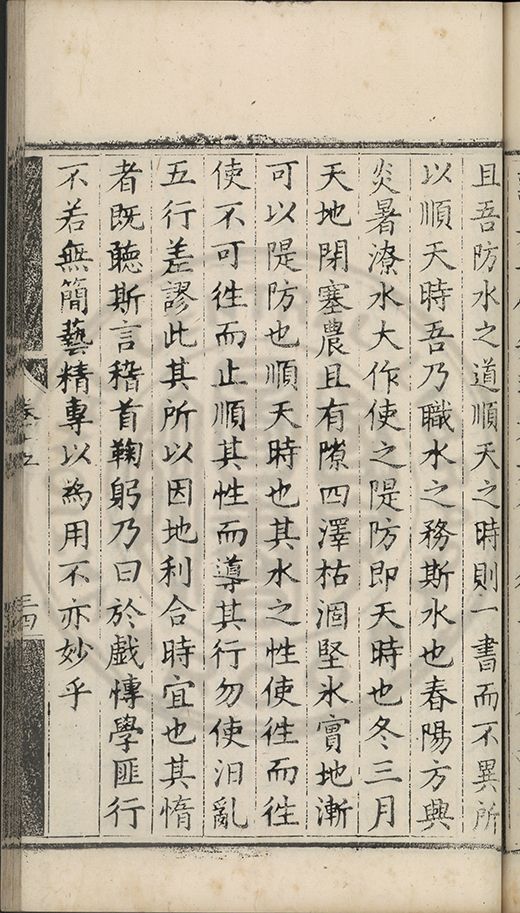 且吾防水之道順天之時則一書而不異所
以順天時吾乃職水之務斯水也春陽方興
炎暑潦水大作使之隄防即天時也冬三月
天地閉塞農且有隙四澤枯涸堅氷實地漸
可以隄防也順天時也其水之性使徃而徃
使不可徃而止順其性而導其行勿使汨亂
五行差謬此其所以因地利合時宜也其惰
者既聽斯言稽首鞠躬乃曰於戲愽學匪行
不若無簡藝精專以為用不亦妙乎
卷十五
三四